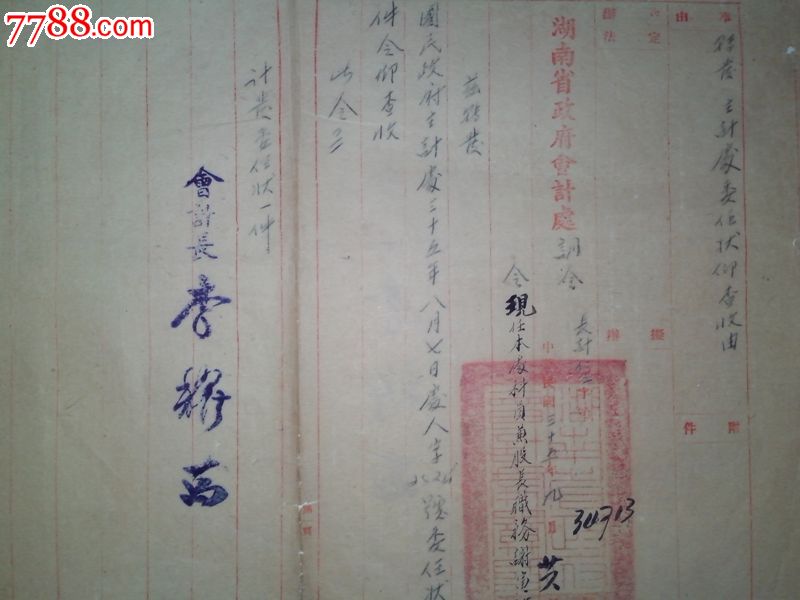 7788.com
事由
轉發主計處委任狀仰查收由
附件
定
辦法
擬辦
湖南省政府會計處
訓令
中華民國三十五年九月
34713
令現任本處科員兼股長職務謝
茲轉發
國民政府主計處三十五年八月七日處人字
號委任狀
件令仰查收
此令
計發委任狀一件
會計長
李